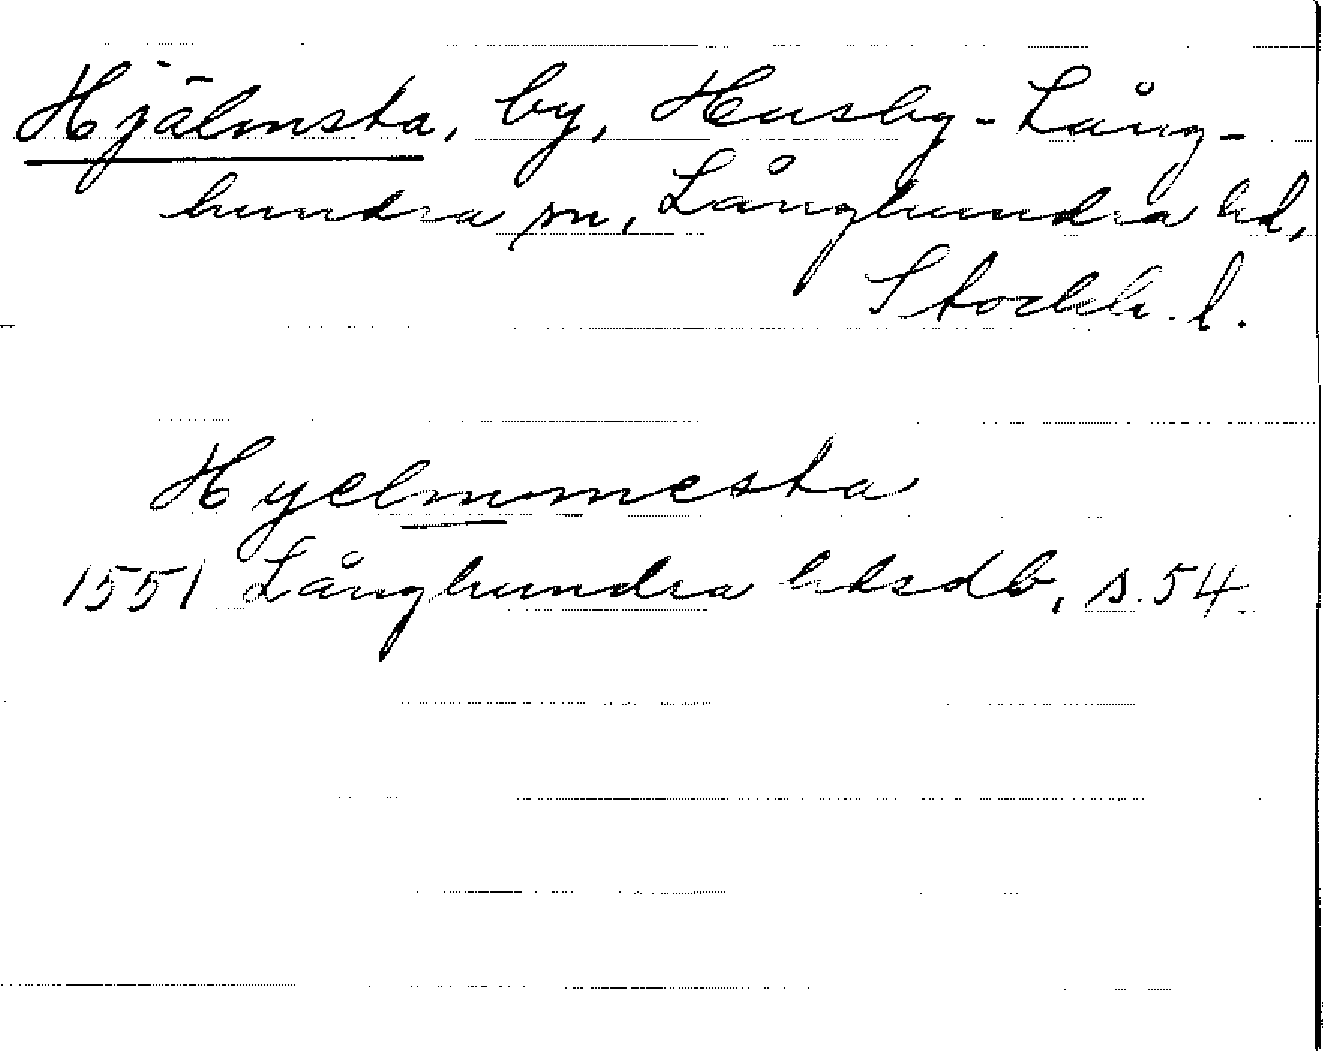 Hjälmsta, by, Husby-Lång-
hundra sn, Långhundra hd,
Stockh. l.
Hyelmmesta
1551 Långhundra hdsdb, s. 54.